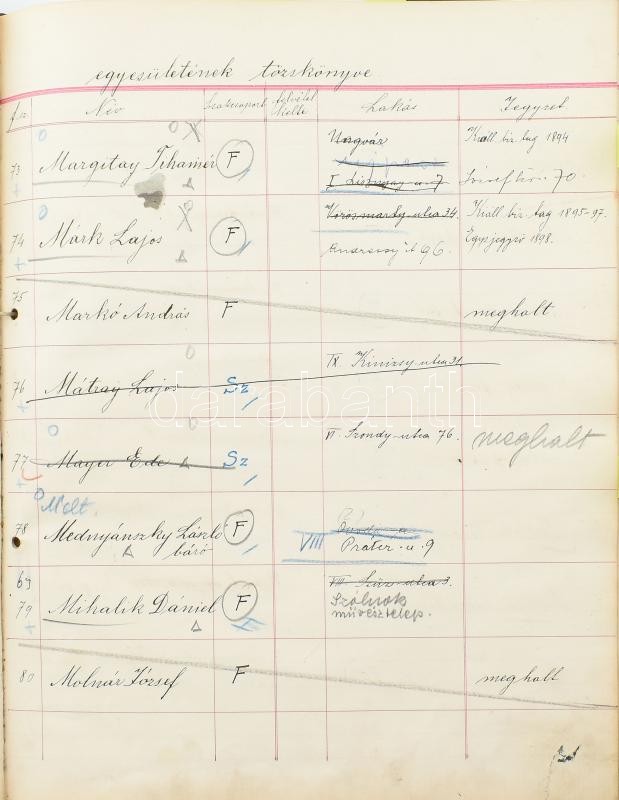 egyesületének törzskönyve
f.sz. Név Szakcsoport felvétel kelte Lakás Jegyzet
73 Margitay Tihamér F Ungvár Kiáll. biz. tag 1894
József krt. 70.
74 Márk Lajos F Vörösmarty-utca 34. Kiáll. biz. tag 1895-97.
Andrássy út 96. 1898.
75 Markó András F meghalt
76 Mátray Lajos Sz IX. Kinizsy-utca 31.
77 Mayer Ede Sz VI. Szondy-utca 76. meghalt
Mélt.
78 Mednyánszky László F
báró VIII Práter-u. 9
69
79 Mihalik Dániel F VIII. Szűz-utca 3.
Szolnok
művésztelep.
80 Molnár József F meghalt
darabanth